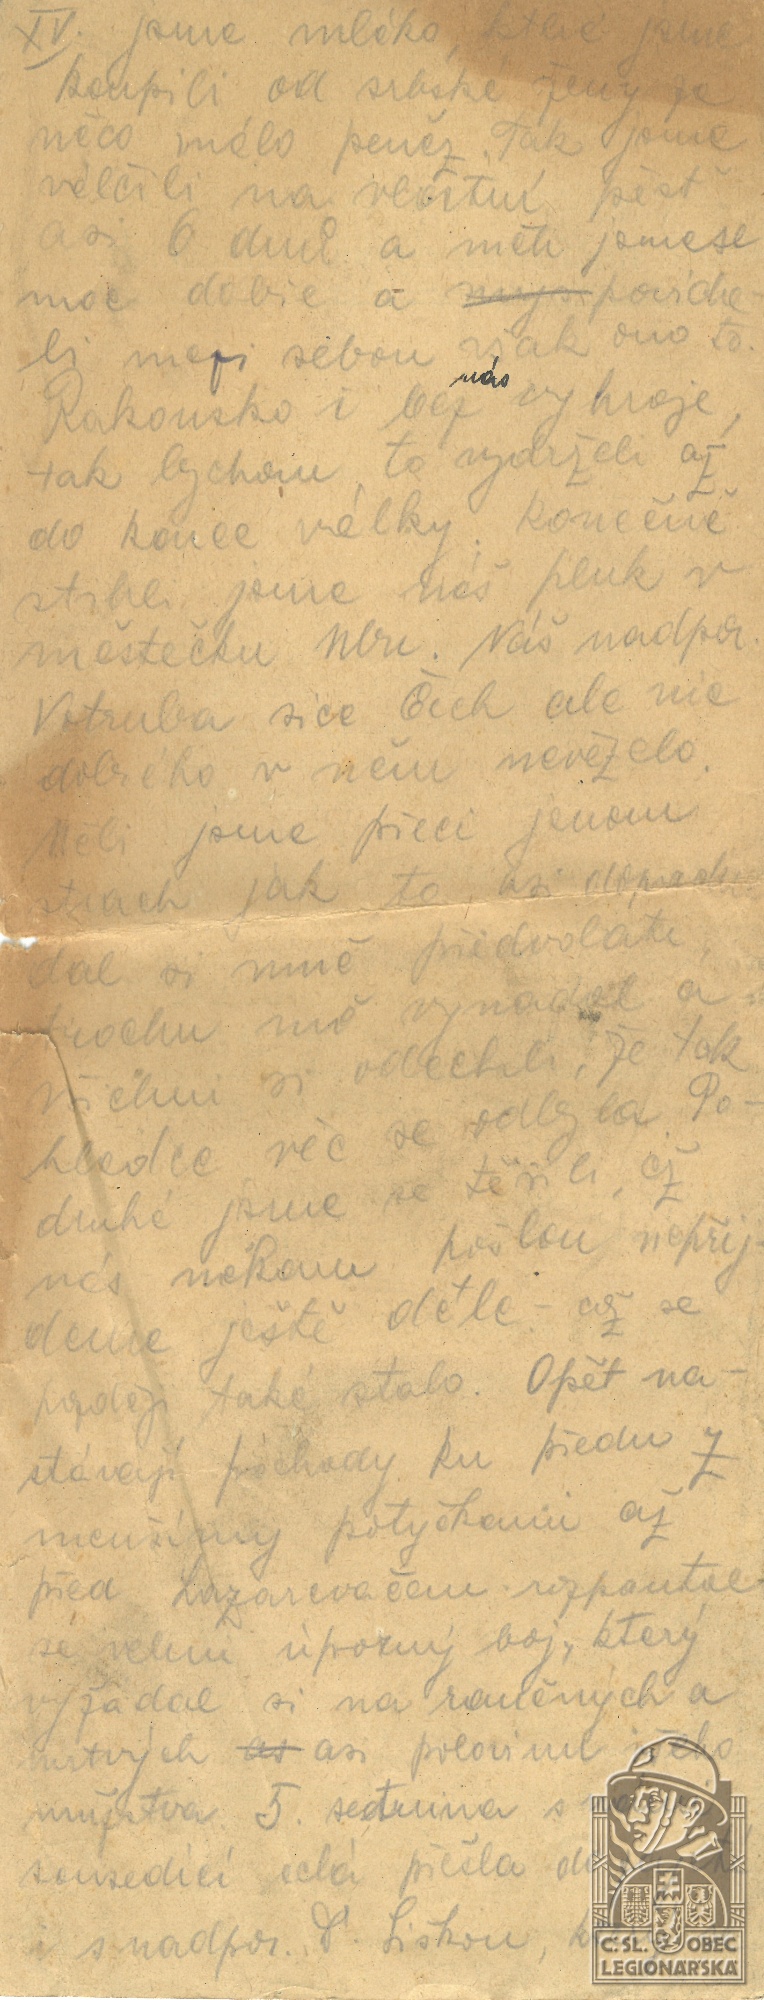 XV. jsme mléko, které jsme
koupili od srbské ženy za
něco málo peněz. Tak jsme
válčili na vlastní pěst
asi 6 dnů a měli jsme se
moc dobře a povída-
li mezi sebou však ono to
Rakousko i bez nás vyhraje,
tak bychom to vydrželi až
do konce války. Konečně
jsme náš pluk v
městečku Ubu. Náš nadpor.
Votruba sice Čech ale nic
dobrého v něm nevězelo.
Měli jsme přeci jenom
strach jak to asi dopadne
dal si mně předvolati,
trochu mě vynadal a
všichni si oddechli, že tak
hladce věc se odbyla. Po-
druhé jsme se těšili, až
nás někam pošlou nepřij-
deme ještě déle - což se
později také stalo. Opět na-
stávají pochody ku předu z
menšímy potyčkami až
před Lazarevačem rozpoutal
se velmi úporný boj, který
vyžádal si na raněných a
mrtvých asi polovinu
mužstva. 5. setnina s
sousedící celá přešla do
i s nadpor. Dr. Liškou,
Č.SL. OBEC
LEGIONÁŘSKÁ